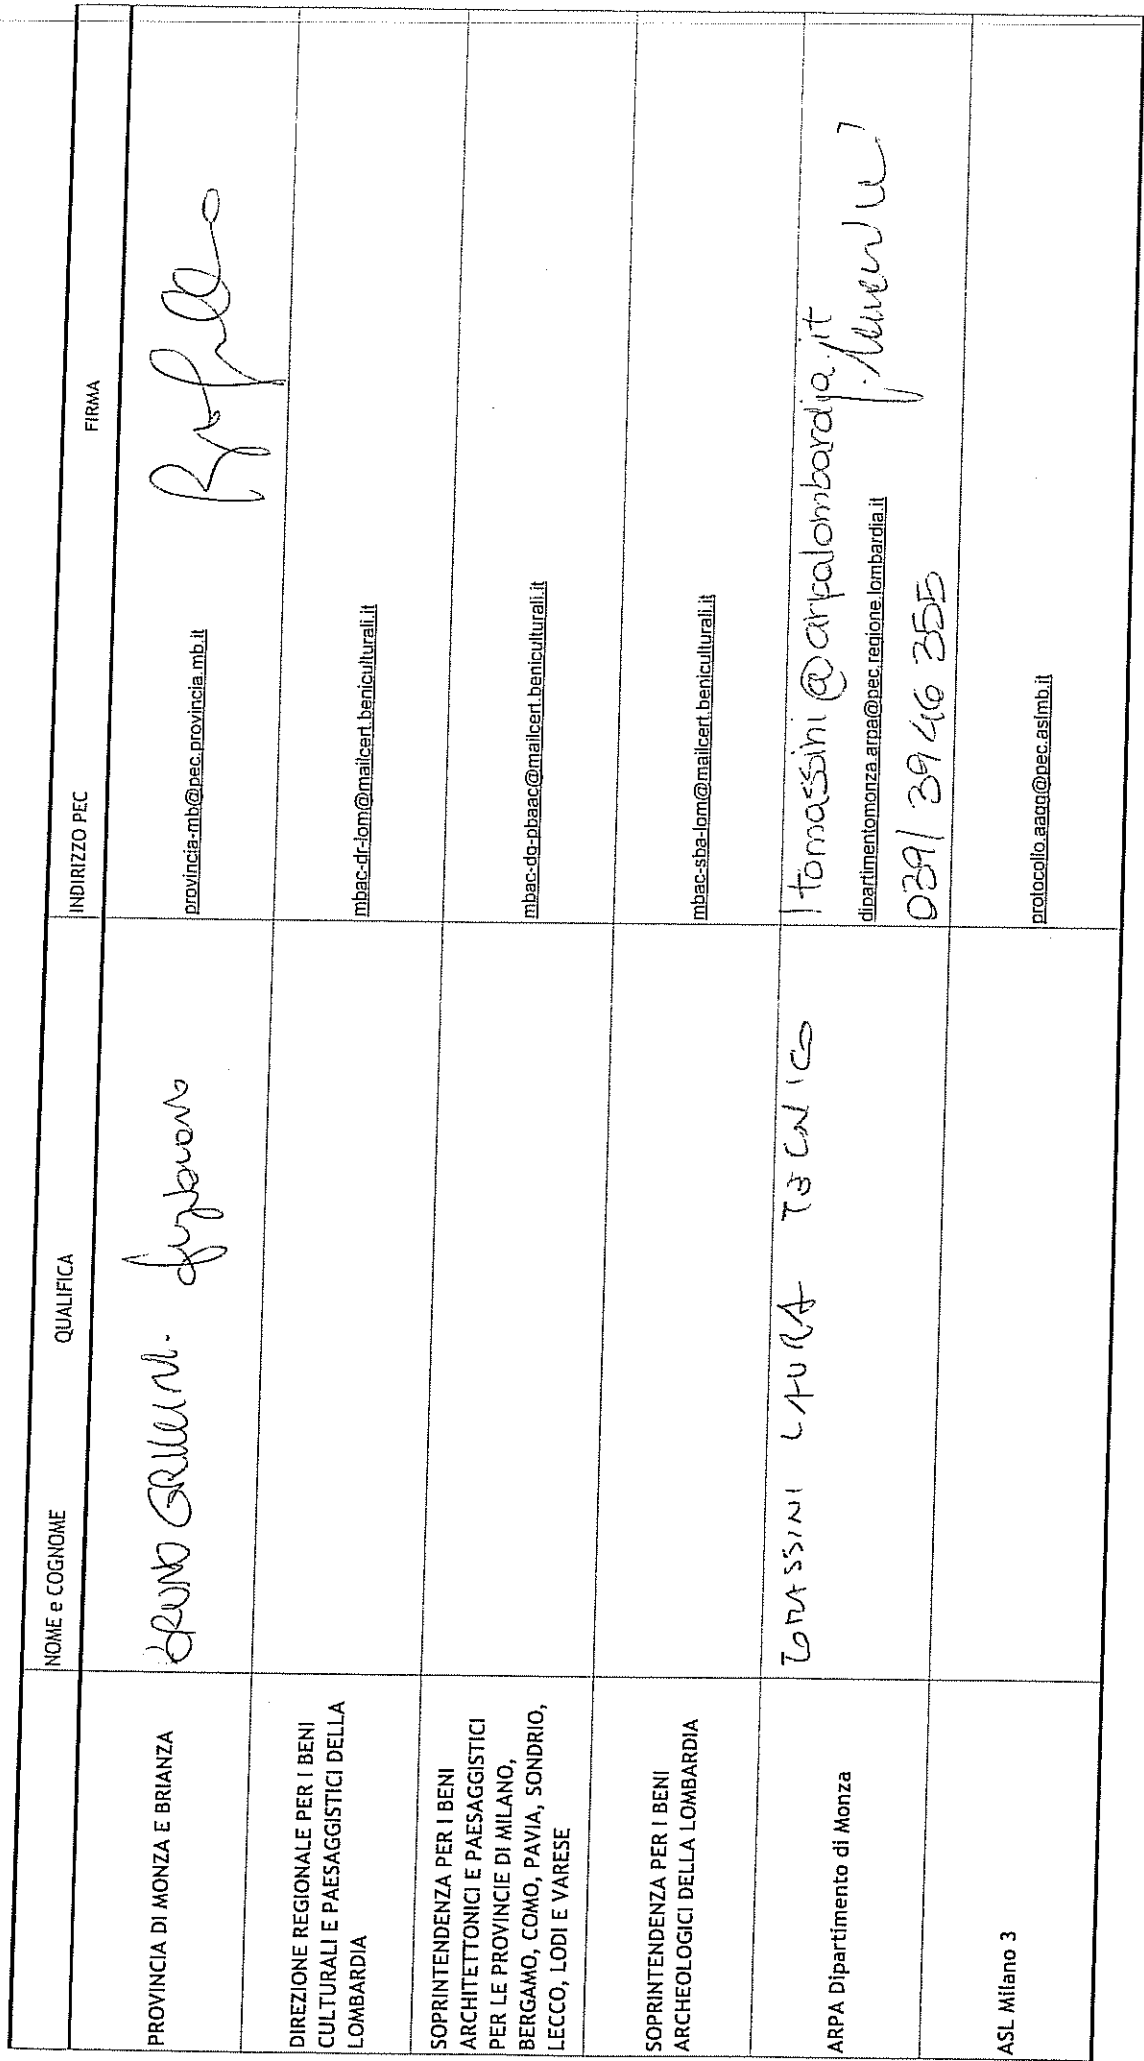 NOME e COGNOME QUALIFICA INDIRIZZO PEC FIRMA
PROVINCIA DI MONZA E BRIANZA
BRUNO GRILLINI.
provincia-mb@pec.provincia.mb.it
DIREZIONE REGIONALE PER I BENI
CULTURALI E PAESAGGISTICI DELLA
LOMBARDIA
mbac-dr-lom@mailcert.beniculturali.it
SOPRINTENDENZA PER I BENI
ARCHITETTONICI E PAESAGGISTICI
PER LE PROVINCIE DI MILANO,
BERGAMO, COMO, PAVIA, SONDRIO,
LECCO, LODI E VARESE
mbac-dg-pbaac@mailcert.beniculturali.it
SOPRINTENDENZA PER I BENI
ARCHEOLOGICI DELLA LOMBARDIA
mbac-sba-lom@mailcert.beniculturali.it
ARPA Dipartimento di Monza
TOMASSINI LAURA TECNICO
l tomassini@arpalombardia.it
dipartimentomonza.arpa@pec.regione.lombardia.it
039/ 3946 355
ASL Milano 3
protocollo.aagg@pec.aslmb.it